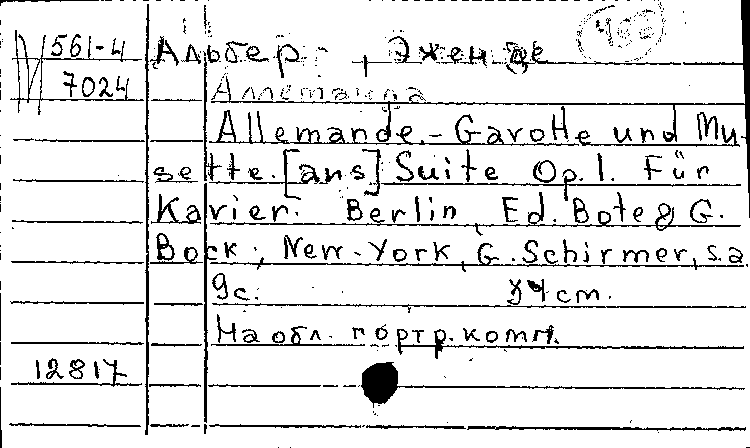 561-4 Альбер, Эжен де
7024 Аллеманда
Allemande.- Gavotte und Mu-
sette. [ans] Suite Op.1. Für
Kavier. Berlin, Ed. Bote & G.
Bock; New-York, G. Schirmer, s.a.
9с. 34 cm.
На обл. портр. комп.
12817